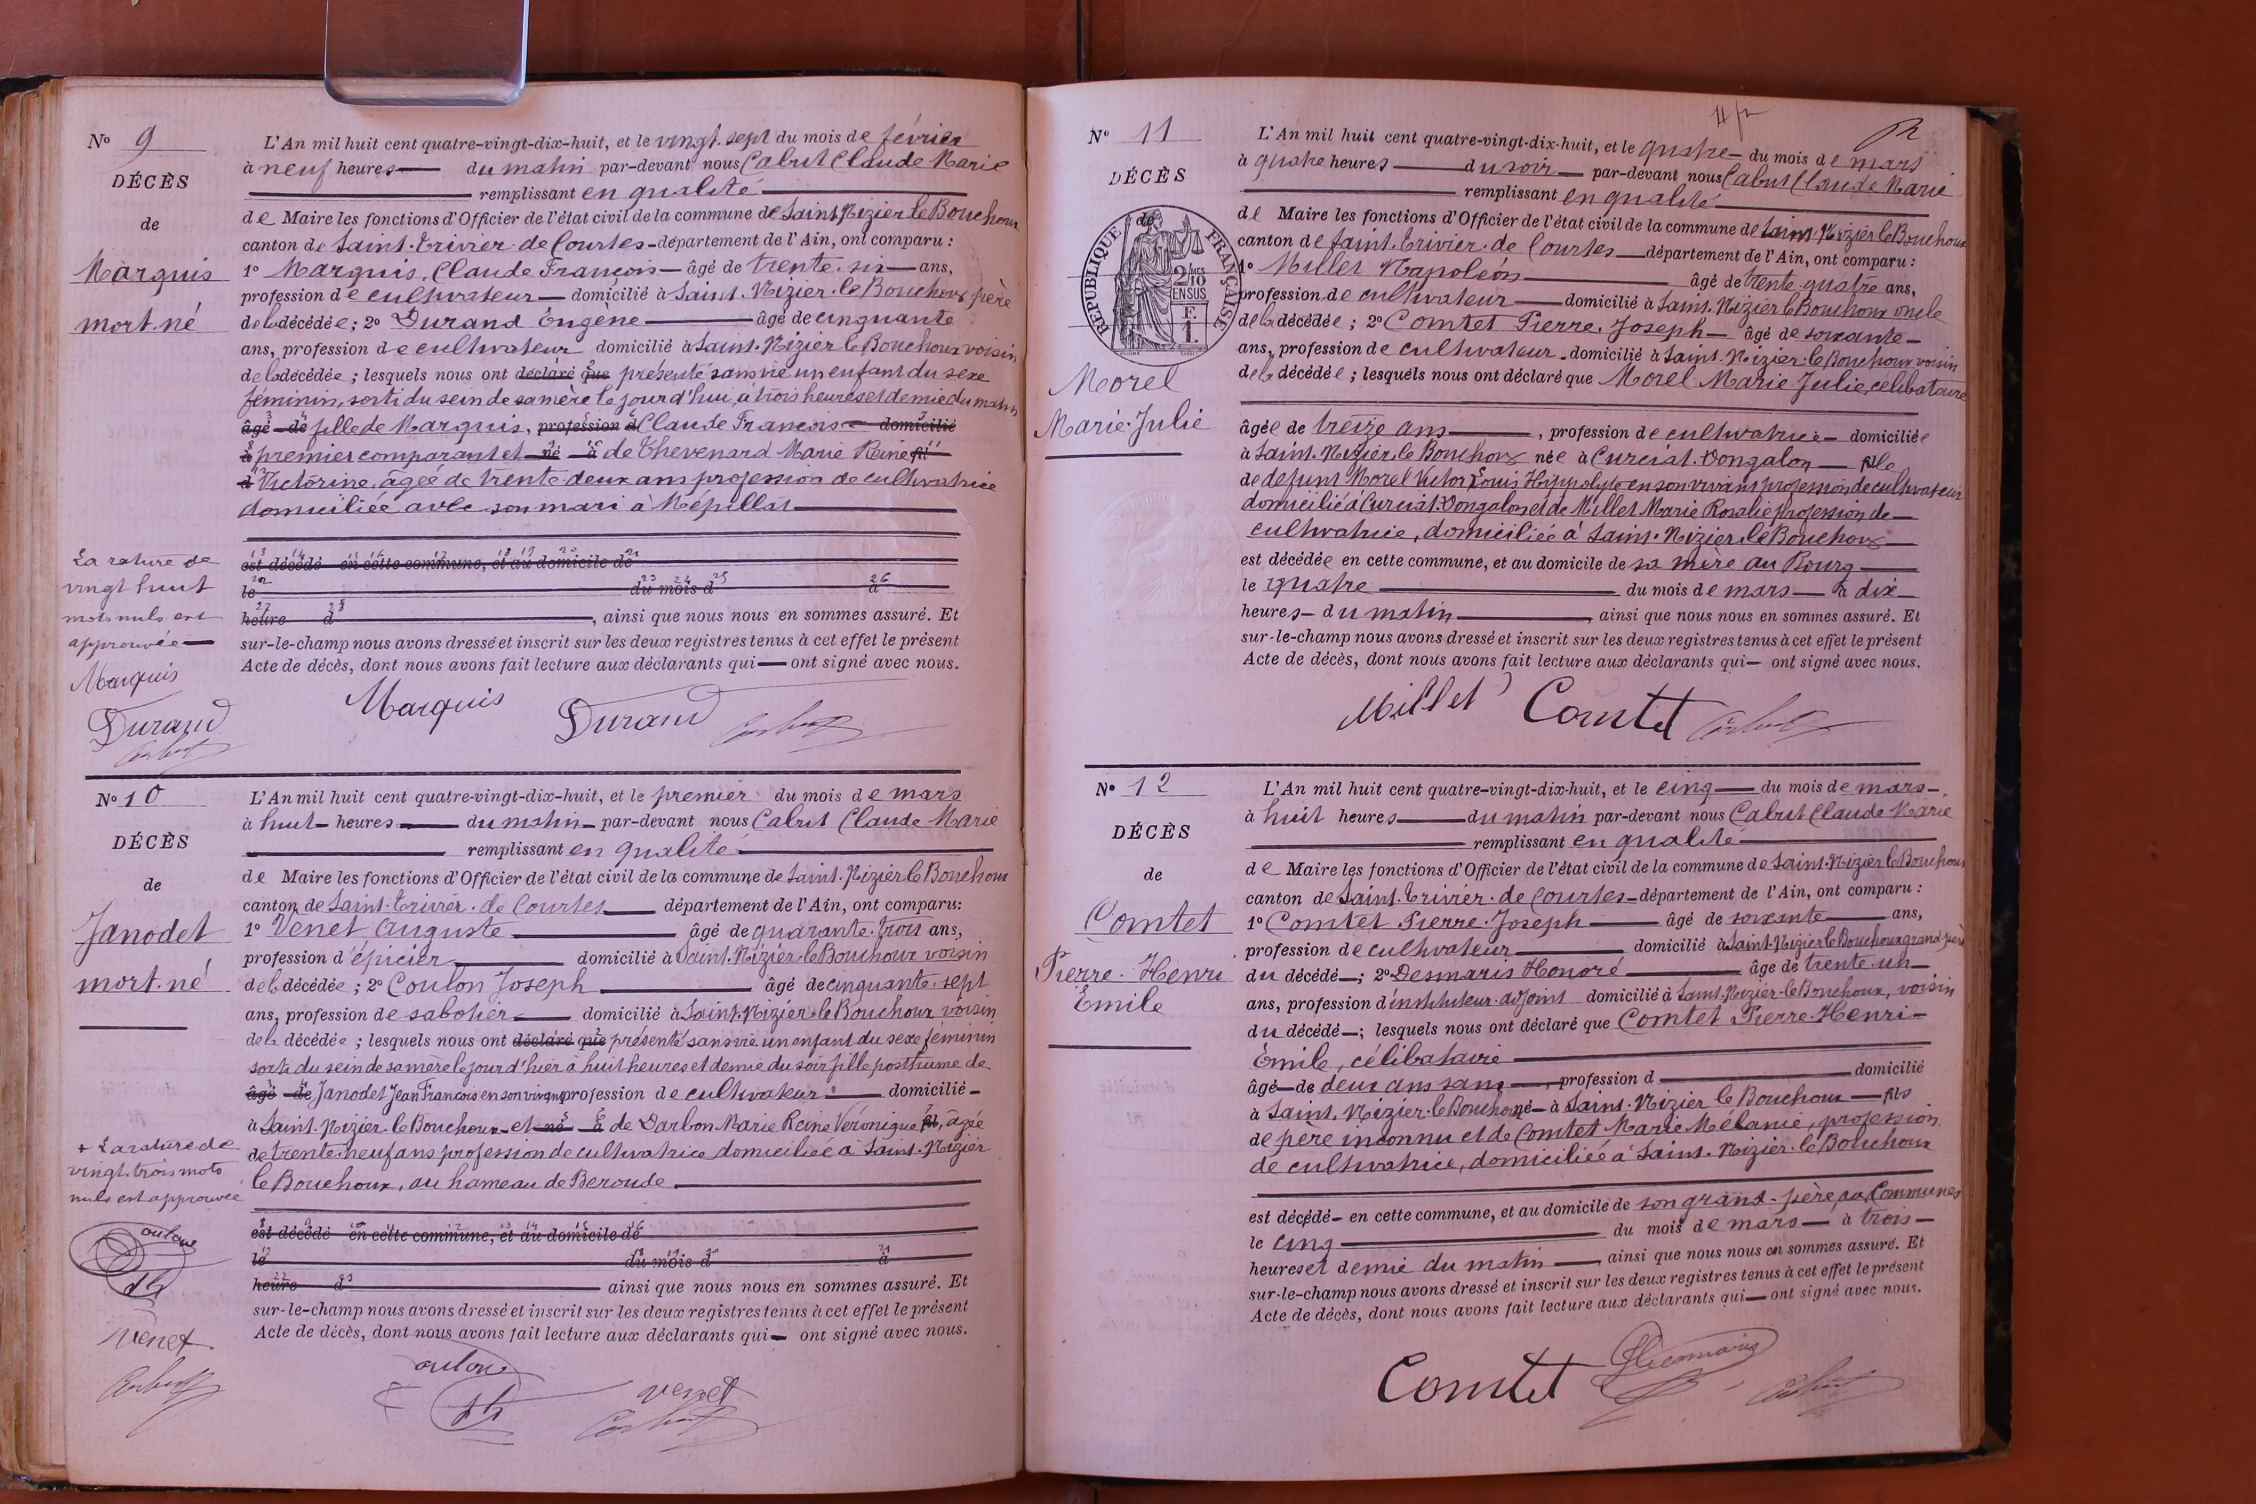 Nº 9
DÉCÈS
de
Marquis
mort-né
L'An mil huit cent quatre-vingt-dix-huit, et le vingt-sept du mois de février
à neuf heures du matin par-devant nous Cabut Claude Marie
remplissant en qualité
de Maire les fonctions d'Officier de l'état civil de la commune de Saint-Nizier le Bouchoux
canton de Saint-Trivier-de Courtes département de l'Ain, ont comparu :
1º Marquis, Claude François âgé de trente-six ans,
profession de cultivateur domicilié à Saint-Nizier-le Bouchoux père
de la décédée ; 2º Durand Eugène âgé de cinquante
ans, profession de cultivateur domicilié à Saint-Nizier le Bouchoux voisin
de la décédée ; lesquels nous ont déclaré que présenté sans vie un enfant du sexe
féminin, sorti du sein de sa mère le jour d'hui, à trois heures et demie du matin
âgé de fille de Marquis, profession d Claude François domicilié
à premier comparant et né à de Thevenard Marie Reine fil
d Victorine, âgée de trente deux ans profession de cultivatrice
domiciliée avec son mari à Népillat
est décédé en cette commune, et au domicile de
le du mois d à
heure d , ainsi que nous nous en sommes assuré. Et
sur-le-champ nous avons dressé et inscrit sur les deux registres tenus à cet effet le présent
Acte de décès, dont nous avons fait lecture aux déclarants qui ont signé avec nous.
La rature de
vingt huit
mots nuls est
approuvée
Marquis
Durand
Marquis Durand
Nº 10
DÉCÈS
de
Janodet
mort-né
L'An mil huit cent quatre-vingt-dix-huit, et le premier du mois de mars
à huit heures du matin par-devant nous Cabut Claude Marie
remplissant en qualité
de Maire les fonctions d'Officier de l'état civil de la commune de Saint-Nizier le Bouchoux
canton de Saint-Trivier-de Courtes département de l'Ain, ont comparu:
1º Venet Auguste âgé de quarante-trois ans,
profession d'épicier domicilié à Saint-Nizier-le Bouchoux voisin
de la décédée ; 2º Coulon Joseph âgé de cinquante-sept
ans, profession de sabotier domicilié à Saint-Nizier-le Bouchoux voisin
de la décédée ; lesquels nous ont déclaré que présenté sans vie un enfant du sexe féminin
sorti du sein de sa mère le jour d'hier à huit heures et demie du soir fille posthume de
âgé de Janodet Jean François en son vivant profession de cultivateur domicilié
à Saint-Nizier-le Bouchoux et né à de Darbon Marie Reine Véronique fil, âgée
de trente-neuf ans profession de cultivatrice domiciliée à Saint-Nizier
le Bouchoux, au hameau de Beroude
est décédé en cette commune, et au domicile de
le du mois d à
heure d ainsi que nous nous en sommes assuré. Et
sur-le-champ nous avons dressé et inscrit sur les deux registres tenus à cet effet le présent
Acte de décès, dont nous avons fait lecture aux déclarants qui ont signé avec nous.
+ La rature de
vingt-trois mots
nuls est approuvée
oulon
venet
oulon
venet
Nº 11
DÉCÈS
de
RÉPUBLIQUE FRANÇAISE
2/10
EN SUS
F.
1.
Morel
Marie-Julie
L'An mil huit cent quatre-vingt-dix-huit, et le quatre du mois de mars
à quatre heures du soir par-devant nous Cabut Claude Marie
remplissant en qualité
de Maire les fonctions d'Officier de l'état civil de la commune de Saint-Nizier le Bouchoux
canton de Saint-Trivier-de Courtes département de l'Ain, ont comparu :
1º Millet Napoléon âgé de trente-quatre ans,
profession de cultivateur domicilié à Saint-Nizier le Bouchoux oncle
de la décédée ; 2º Comtet Pierre-Joseph âgé de soixante
ans, profession de cultivateur domicilié à Saint-Nizier-le Bouchoux voisin
de la décédée ; lesquels nous ont déclaré que Morel Marie Julie, célibataire
âgée de treize ans , profession de cultivatrice domiciliée
à Saint-Nizier-le Bouchoux née à Curciat-Dongalon fille
de défunt Morel Victor Louis Hyppolyte en son vivant profession de cultivateur
domicilié à Curciat-Dongalon et de Millet Marie Rosalie profession de
cultivatrice, domiciliée à Saint-Nizier-le Bouchoux
est décédée en cette commune, et au domicile de sa mère au Bourg
le quatre du mois de mars à dix
heures du matin , ainsi que nous nous en sommes assuré. Et
sur-le-champ nous avons dressé et inscrit sur les deux registres tenus à cet effet le présent
Acte de décès, dont nous avons fait lecture aux déclarants qui ont signé avec nous.
Millet Comtet
Nº 12
DÉCÈS
de
Comtet
Pierre-Henri
Émile
L'An mil huit cent quatre-vingt-dix-huit, et le cinq du mois de mars
à huit heures du matin par-devant nous Cabut Claude Marie
remplissant en qualité
de Maire les fonctions d'Officier de l'état civil de la commune de Saint-Nizier le Bouchoux
canton de Saint-Trivier-de Courtes département de l'Ain, ont comparu :
1º Comtet Pierre-Joseph âgé de soixante ans,
profession de cultivateur domicilié à Saint-Nizier le Bouchoux grand-père
du décédé ; 2º Desmaris Honoré âgé de trente-un
ans, profession d'instituteur-adjoint domicilié à Saint-Nizier-le Bouchoux, voisin
du décédé ; lesquels nous ont déclaré que Comtet Pierre-Henri
Émile, célibataire
âgé de deux ans sans , profession d domicilié
à Saint-Nizier-le Bouchoux né à Saint-Nizier le Bouchoux fils
de père inconnu et de Comtet Marie Mélanie, profession
de cultivatrice, domiciliée à Saint-Nizier-le Bouchoux
est décédé en cette commune, et au domicile de son grand-père, aux Communes
le cinq du mois de mars à trois
heures et demie du matin , ainsi que nous nous en sommes assuré. Et
sur-le-champ nous avons dressé et inscrit sur les deux registres tenus à cet effet le présent
Acte de décès, dont nous avons fait lecture aux déclarants qui ont signé avec nous.
Comtet Desmaris